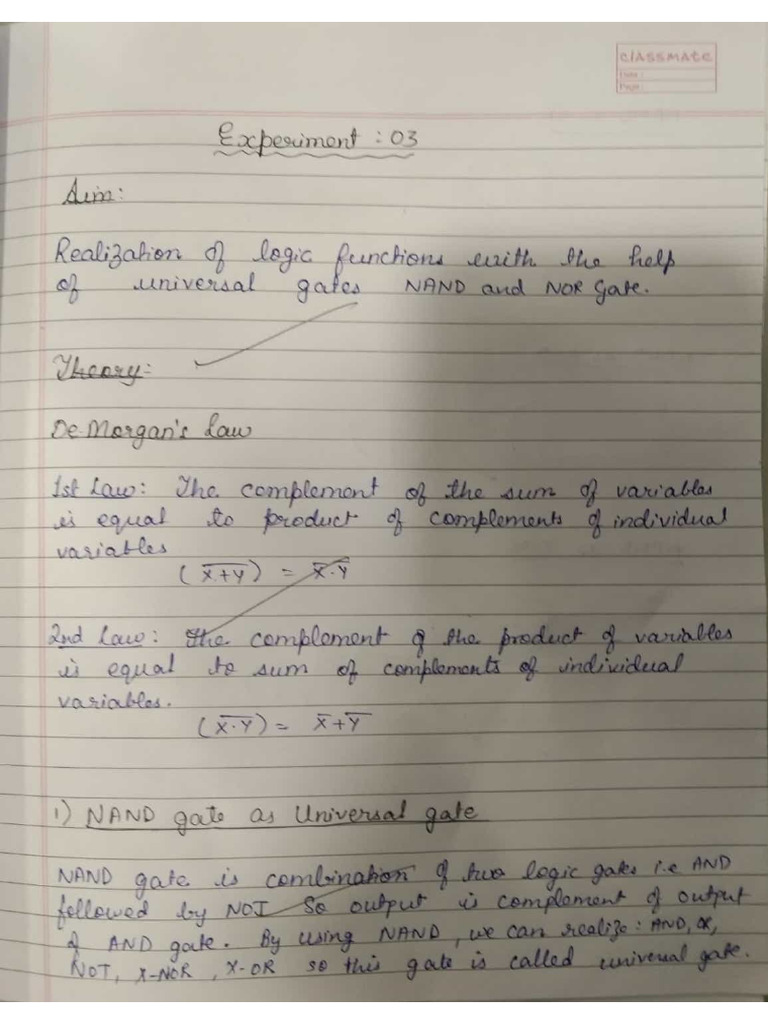 classmate
Date :
Page :
Experiment : 03
Aim:
Realization of logic functions with the help
of universal gates NAND and NOR Gate.
Theory:
De-Morgan's Law
1st Law: The complement of the sum of variables
is equal to product of complements of individual
variables
(X̅+̅Y̅) = X̅.Y̅
2nd Law: The complement of the product of variables
is equal to sum of complements of individual
variables.
(X̅.̅Y̅) = X̅+Y̅
1) NAND gate as Universal gate
NAND gate is combination of two logic gates i.e AND
followed by NOT So output is complement of output
of AND gate. By using NAND, we can realize: AND, OR,
NOT, X-NOR, X-OR so this gate is called universal gate.